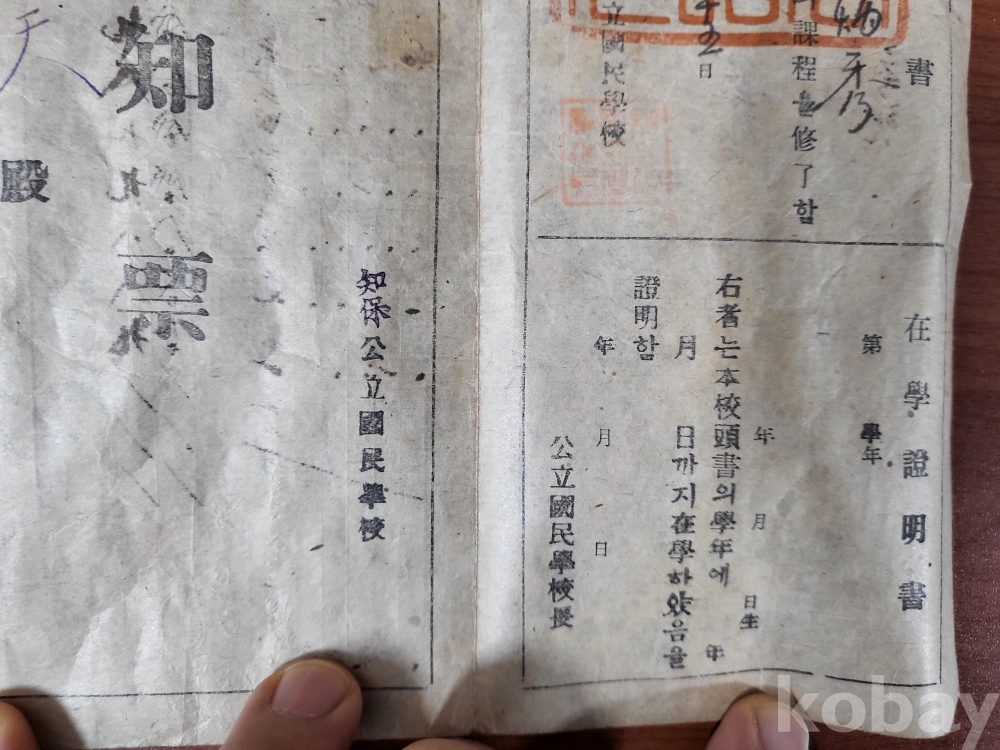 書
課程을修了함
日
立國民學校
在學證明書
第 學年
年 月 日生
右者는本校頭書의學年에 年
月 日까지在學하얏음을
證明함
年 月 日
公立國民學校長
知保公立國民學校
知票
殿
kobay